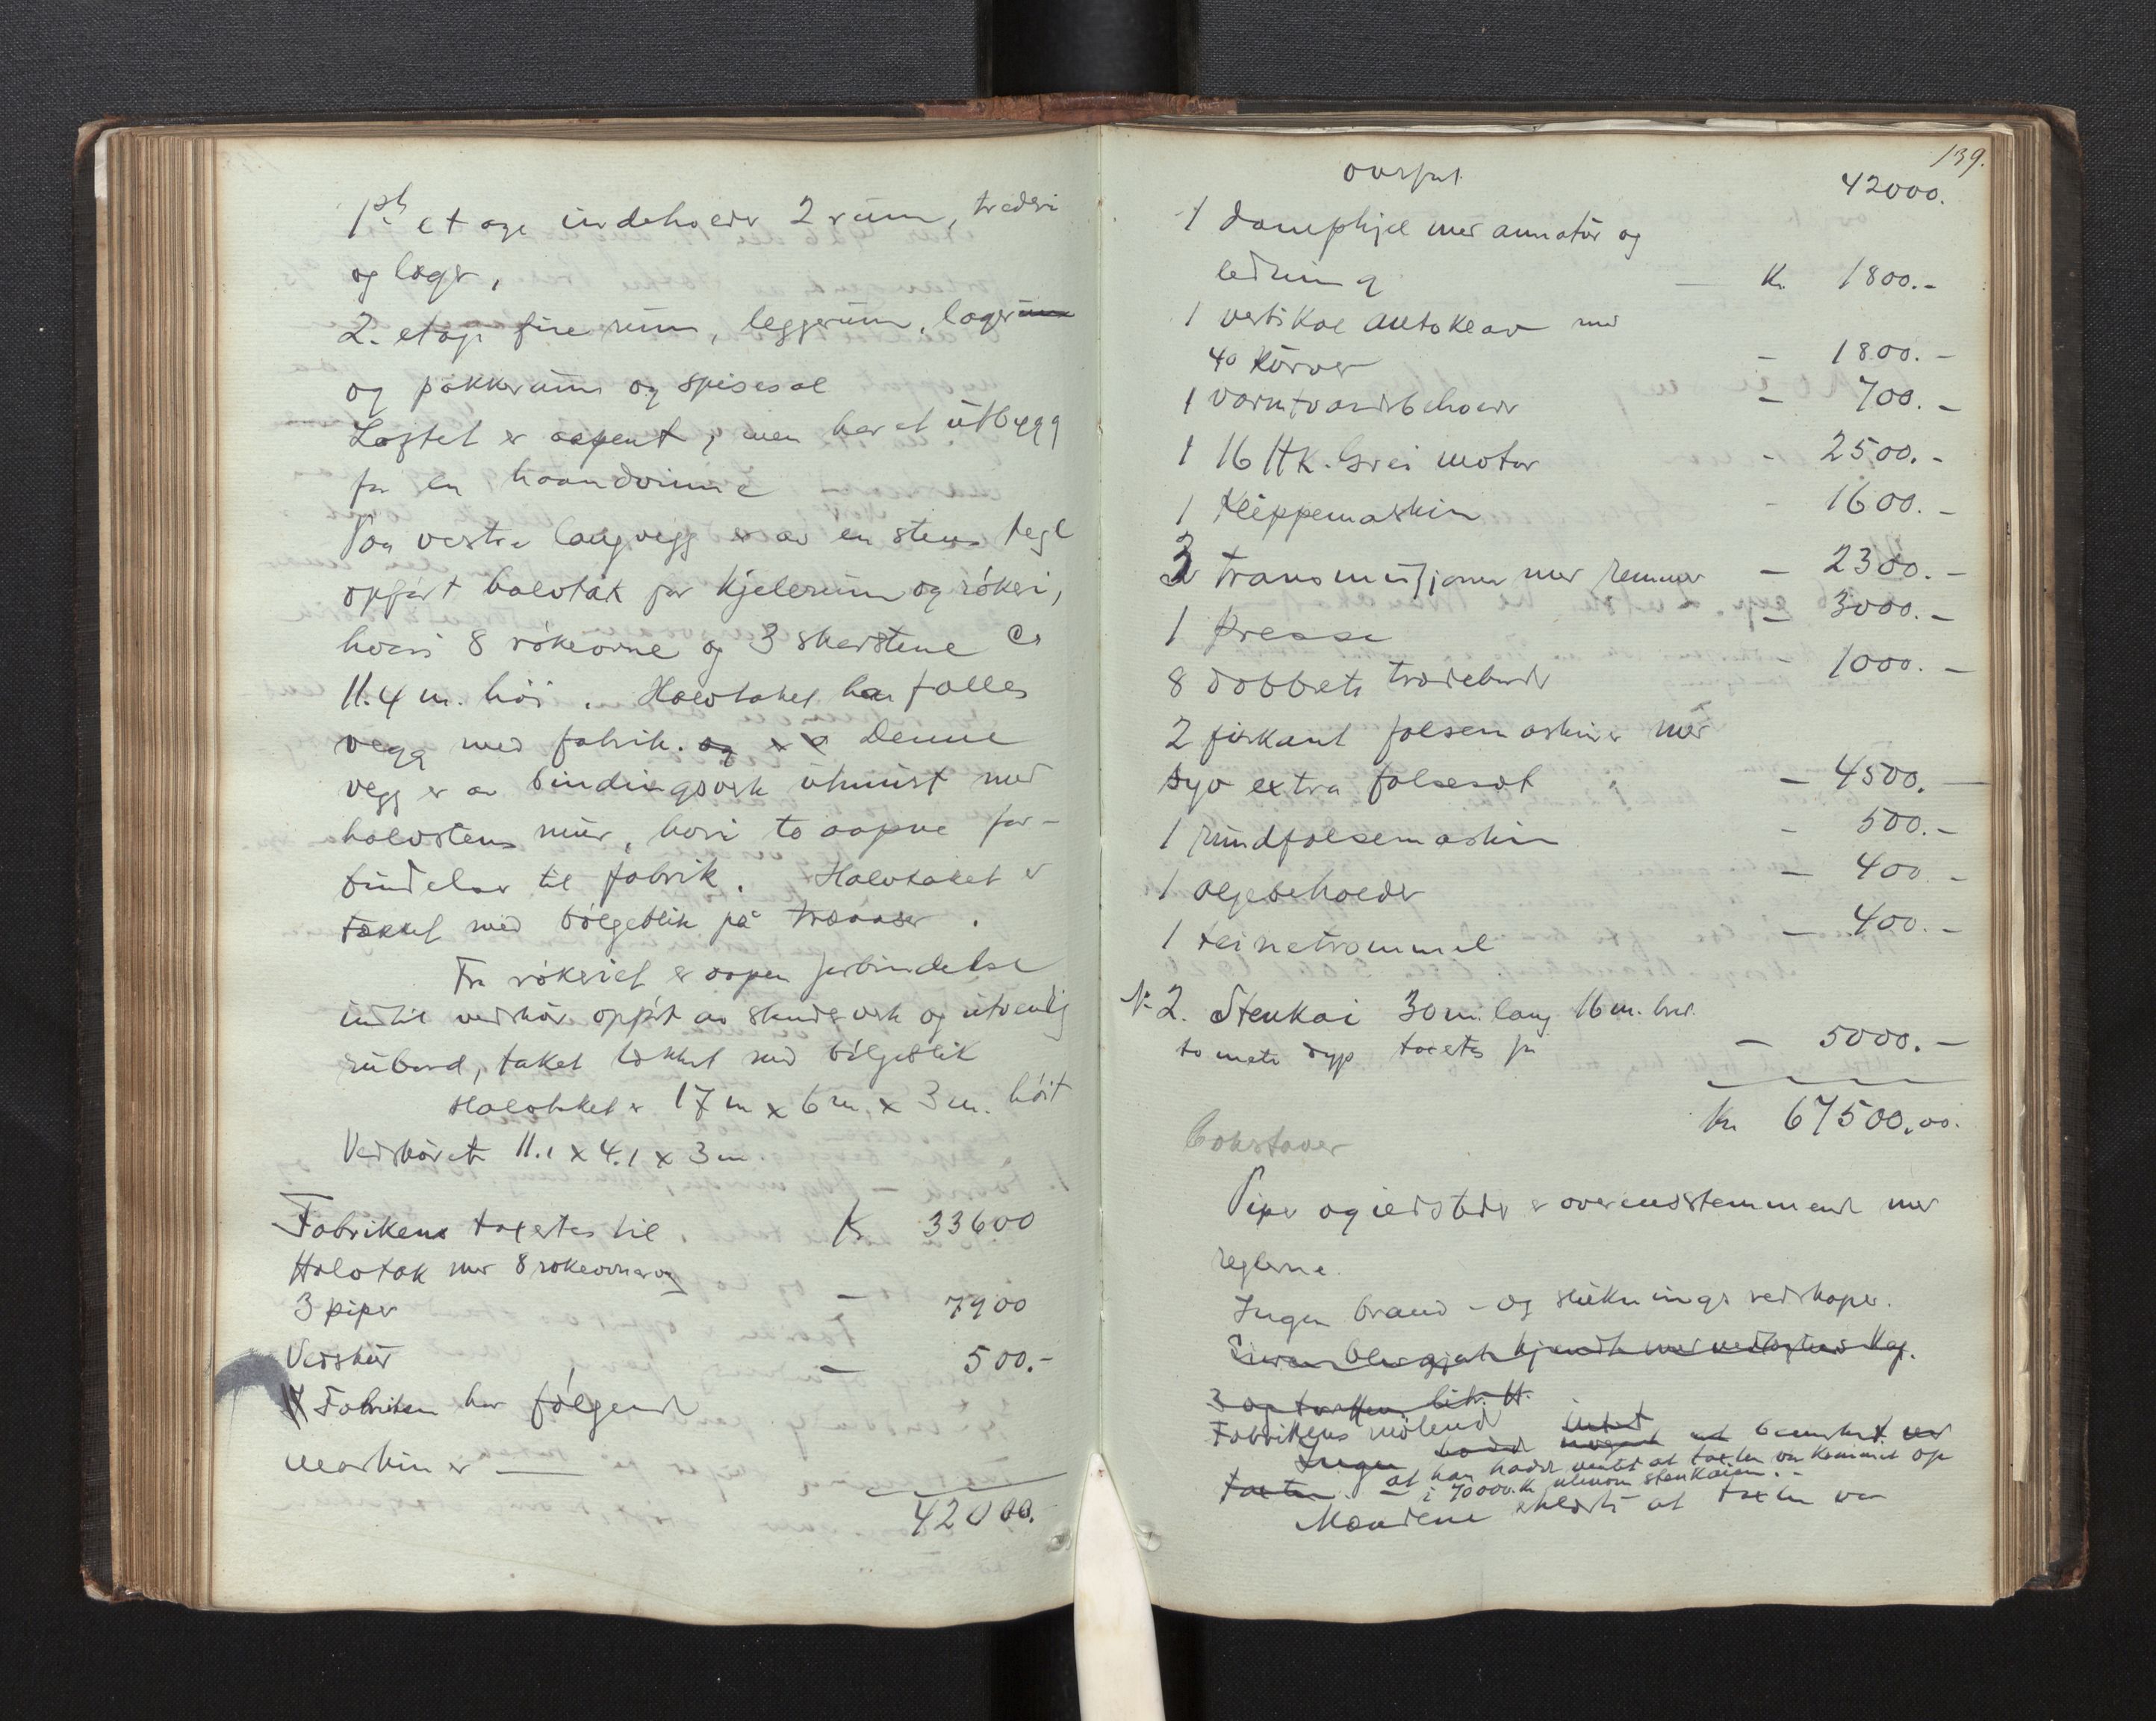 1ste etage indeholder 2 rum, træderi
og lager,
2. etage fire rum, leggerum, lagerrum
og pakkerum og spisesal
Loftet er aapent, men har et utbygg
for en haandvinne
Paa vestre langvegg er av en stens tegl
opført halvtak for kjelerum og røkeri,
hvori 8 røkeovne og 3 skorstene ca
11.4 m. høi. Halvtaket har fælles
vegg med fabrik. og Denne
vegg er av bindingsverk utmurt med
halvstens mur, hvori to aapne for-
bindelser til fabrik. Halvtaket er
tækket med bølgeblik på træaaser.
Fra røkeriet er aapen forbindelse
indtil vedskur opført av skudverk og utvendig
rubord, taket tækket med bølgeblik
Halvtaket er 17 m x 6 m. x 3 m. høit
Vedskuret 11.1 x 4.1 x 3 m.
Fabrikens taxertes til Kr 33600
Halvtak med 8 rökeovner og
3 piper — 7900
Vedskur — 500.-
Fabriken har følgende
maskiner —
42000.
139.
overført 42000.
1 dampkjel med armatur og
ledning — Kr. 1800.-
1 vertikal autoklav med
40 kurver - 1800.-
1 varmtvandsbeholder - 700.-
1 16 Hk. Grei motor - 2500.-
1 Klippemaskin - 1600.-
3 transmisjoner med remmer - 2300.-
1 Presse - 3000.-
8 dobbelte trædeborde - 1000.-
2 firkant falsemaskiner med
syv extra falsesæt - 4500.-
1 rundfalsemaskin - 500.-
1 oljebeholder - 400.-
1 teinetrommel - 400.-
No 2. Stenkai 30 m. lang 16 m. bred
to meter dyp taxertes for — 5000.-
Kr 67500.00.
Bokstaver
Piper og ildsteder er overensstemmende med
reglerne.
Ingen brand- og slukningsredskaper.
3 og takken litr. H.
Fabrikens intet bemerket
Ingen hadde noget at
at han hadde ventet at taxten var kommet op
taxten - i 70000 kr utenom stenkaien.-
Mændene erklærte at taxten var